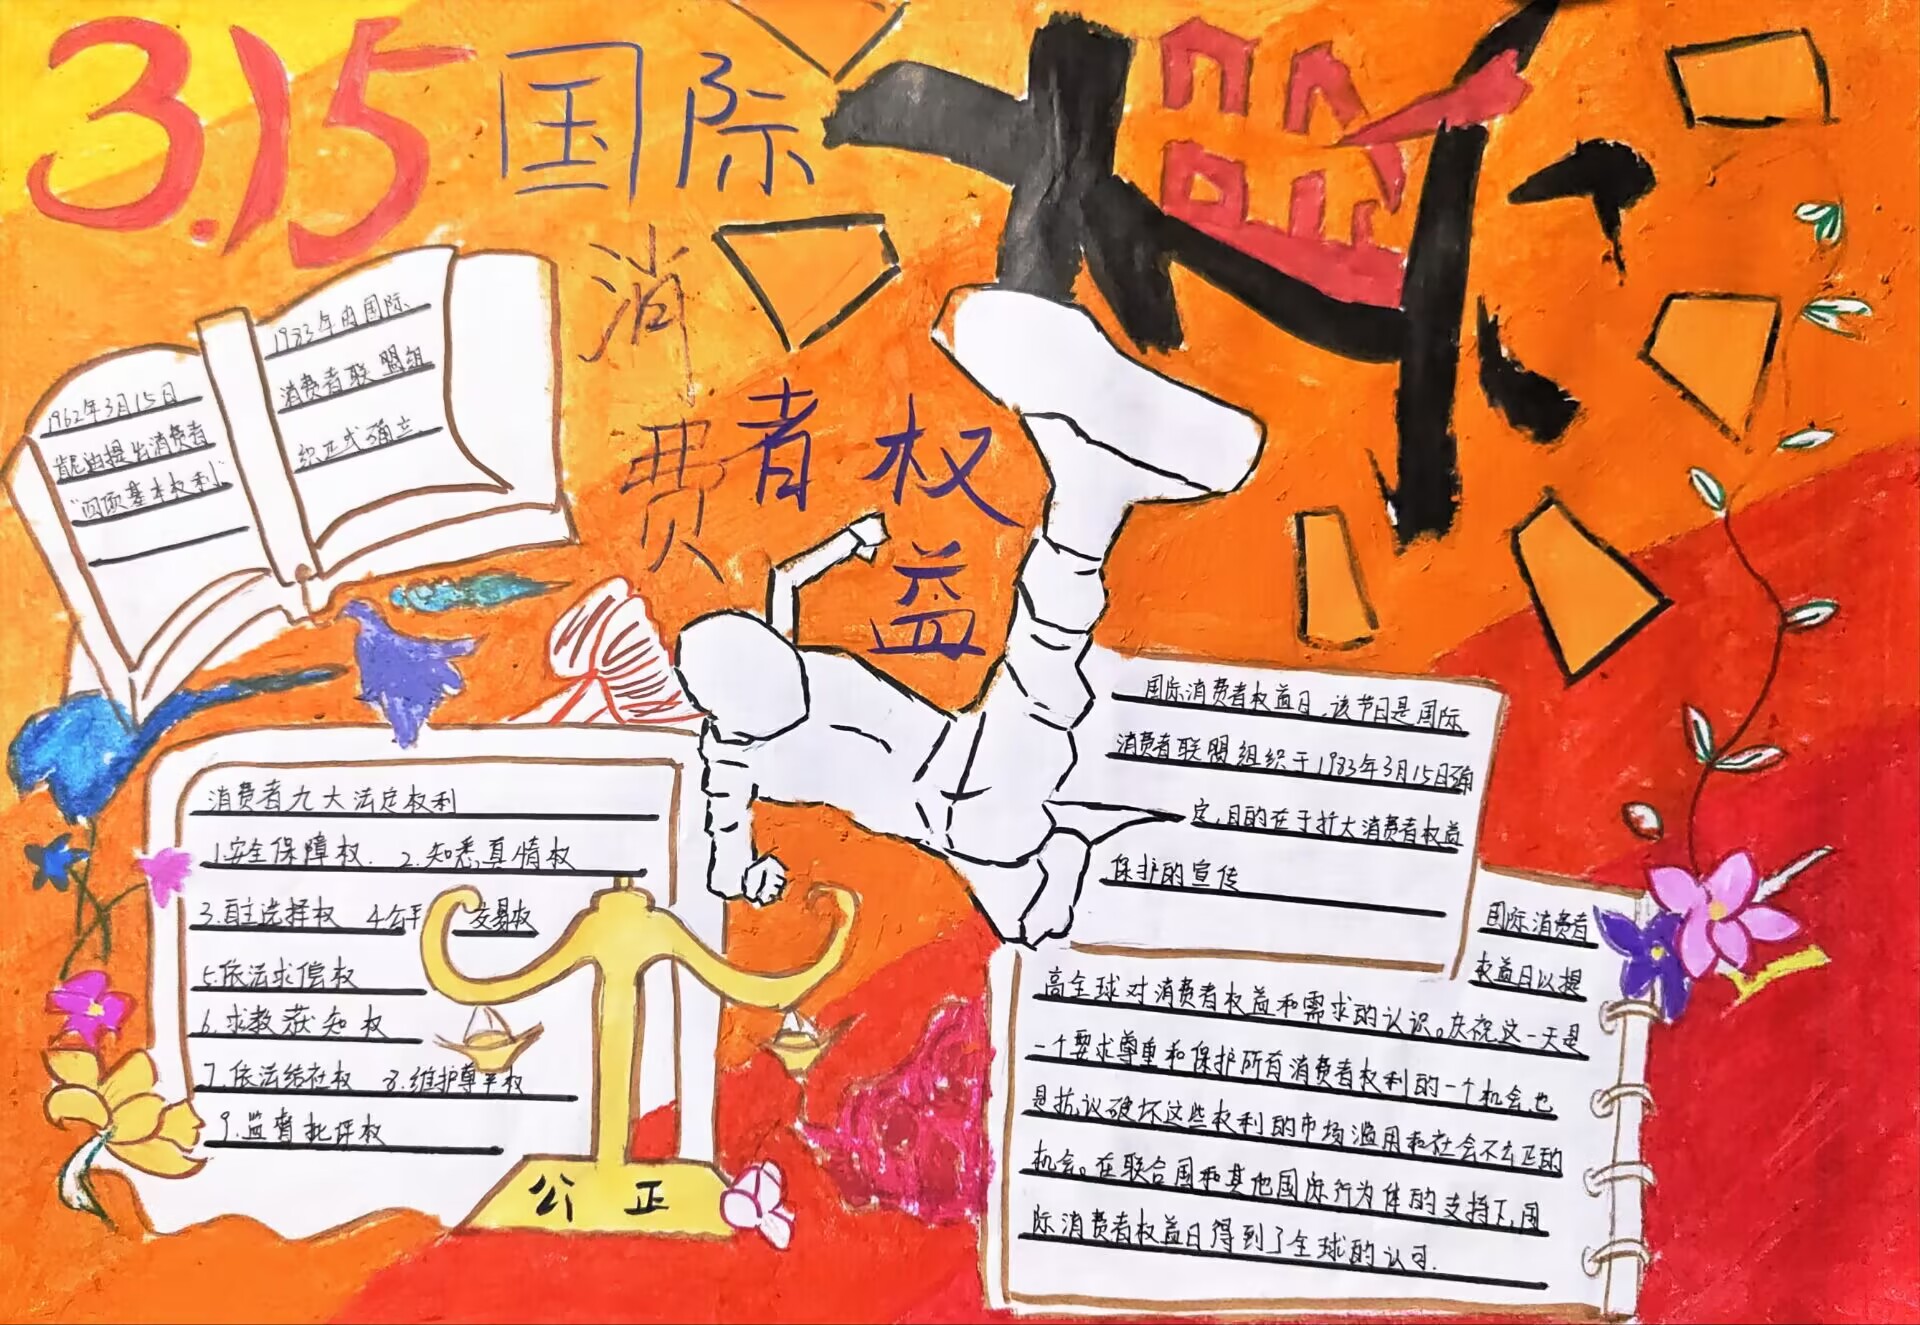 3.15
国际
消
费者权
益
1962年3月15日
肯尼迪提出消费者
"四项基本权利"
1983年由国际
消费者联盟组
织正式确立.
消费者九大法定权利
1.安全保障权. 2.知悉真情权
3.自主选择权 4公平 交易权
5.依法求偿权
6.求教获知权
7.依法结社权 8.维护尊严权
9.监督批评权
公正
国际消费者权益日,该节日是国际
消费者联盟组织于1983年3月15日确
定,目的在于扩大消费者权益
保护的宣传
国际消费者
权益日以提
高全球对消费者权益和需求的认识。庆祝这一天是
一个要求尊重和保护所有消费者权利的一个机会,也
是抗议破坏这些权利的市场滥用和社会不公正的
机会。在联合国和其他国际行为体的支持下,国
际消费者权益日得到了全球的认可.